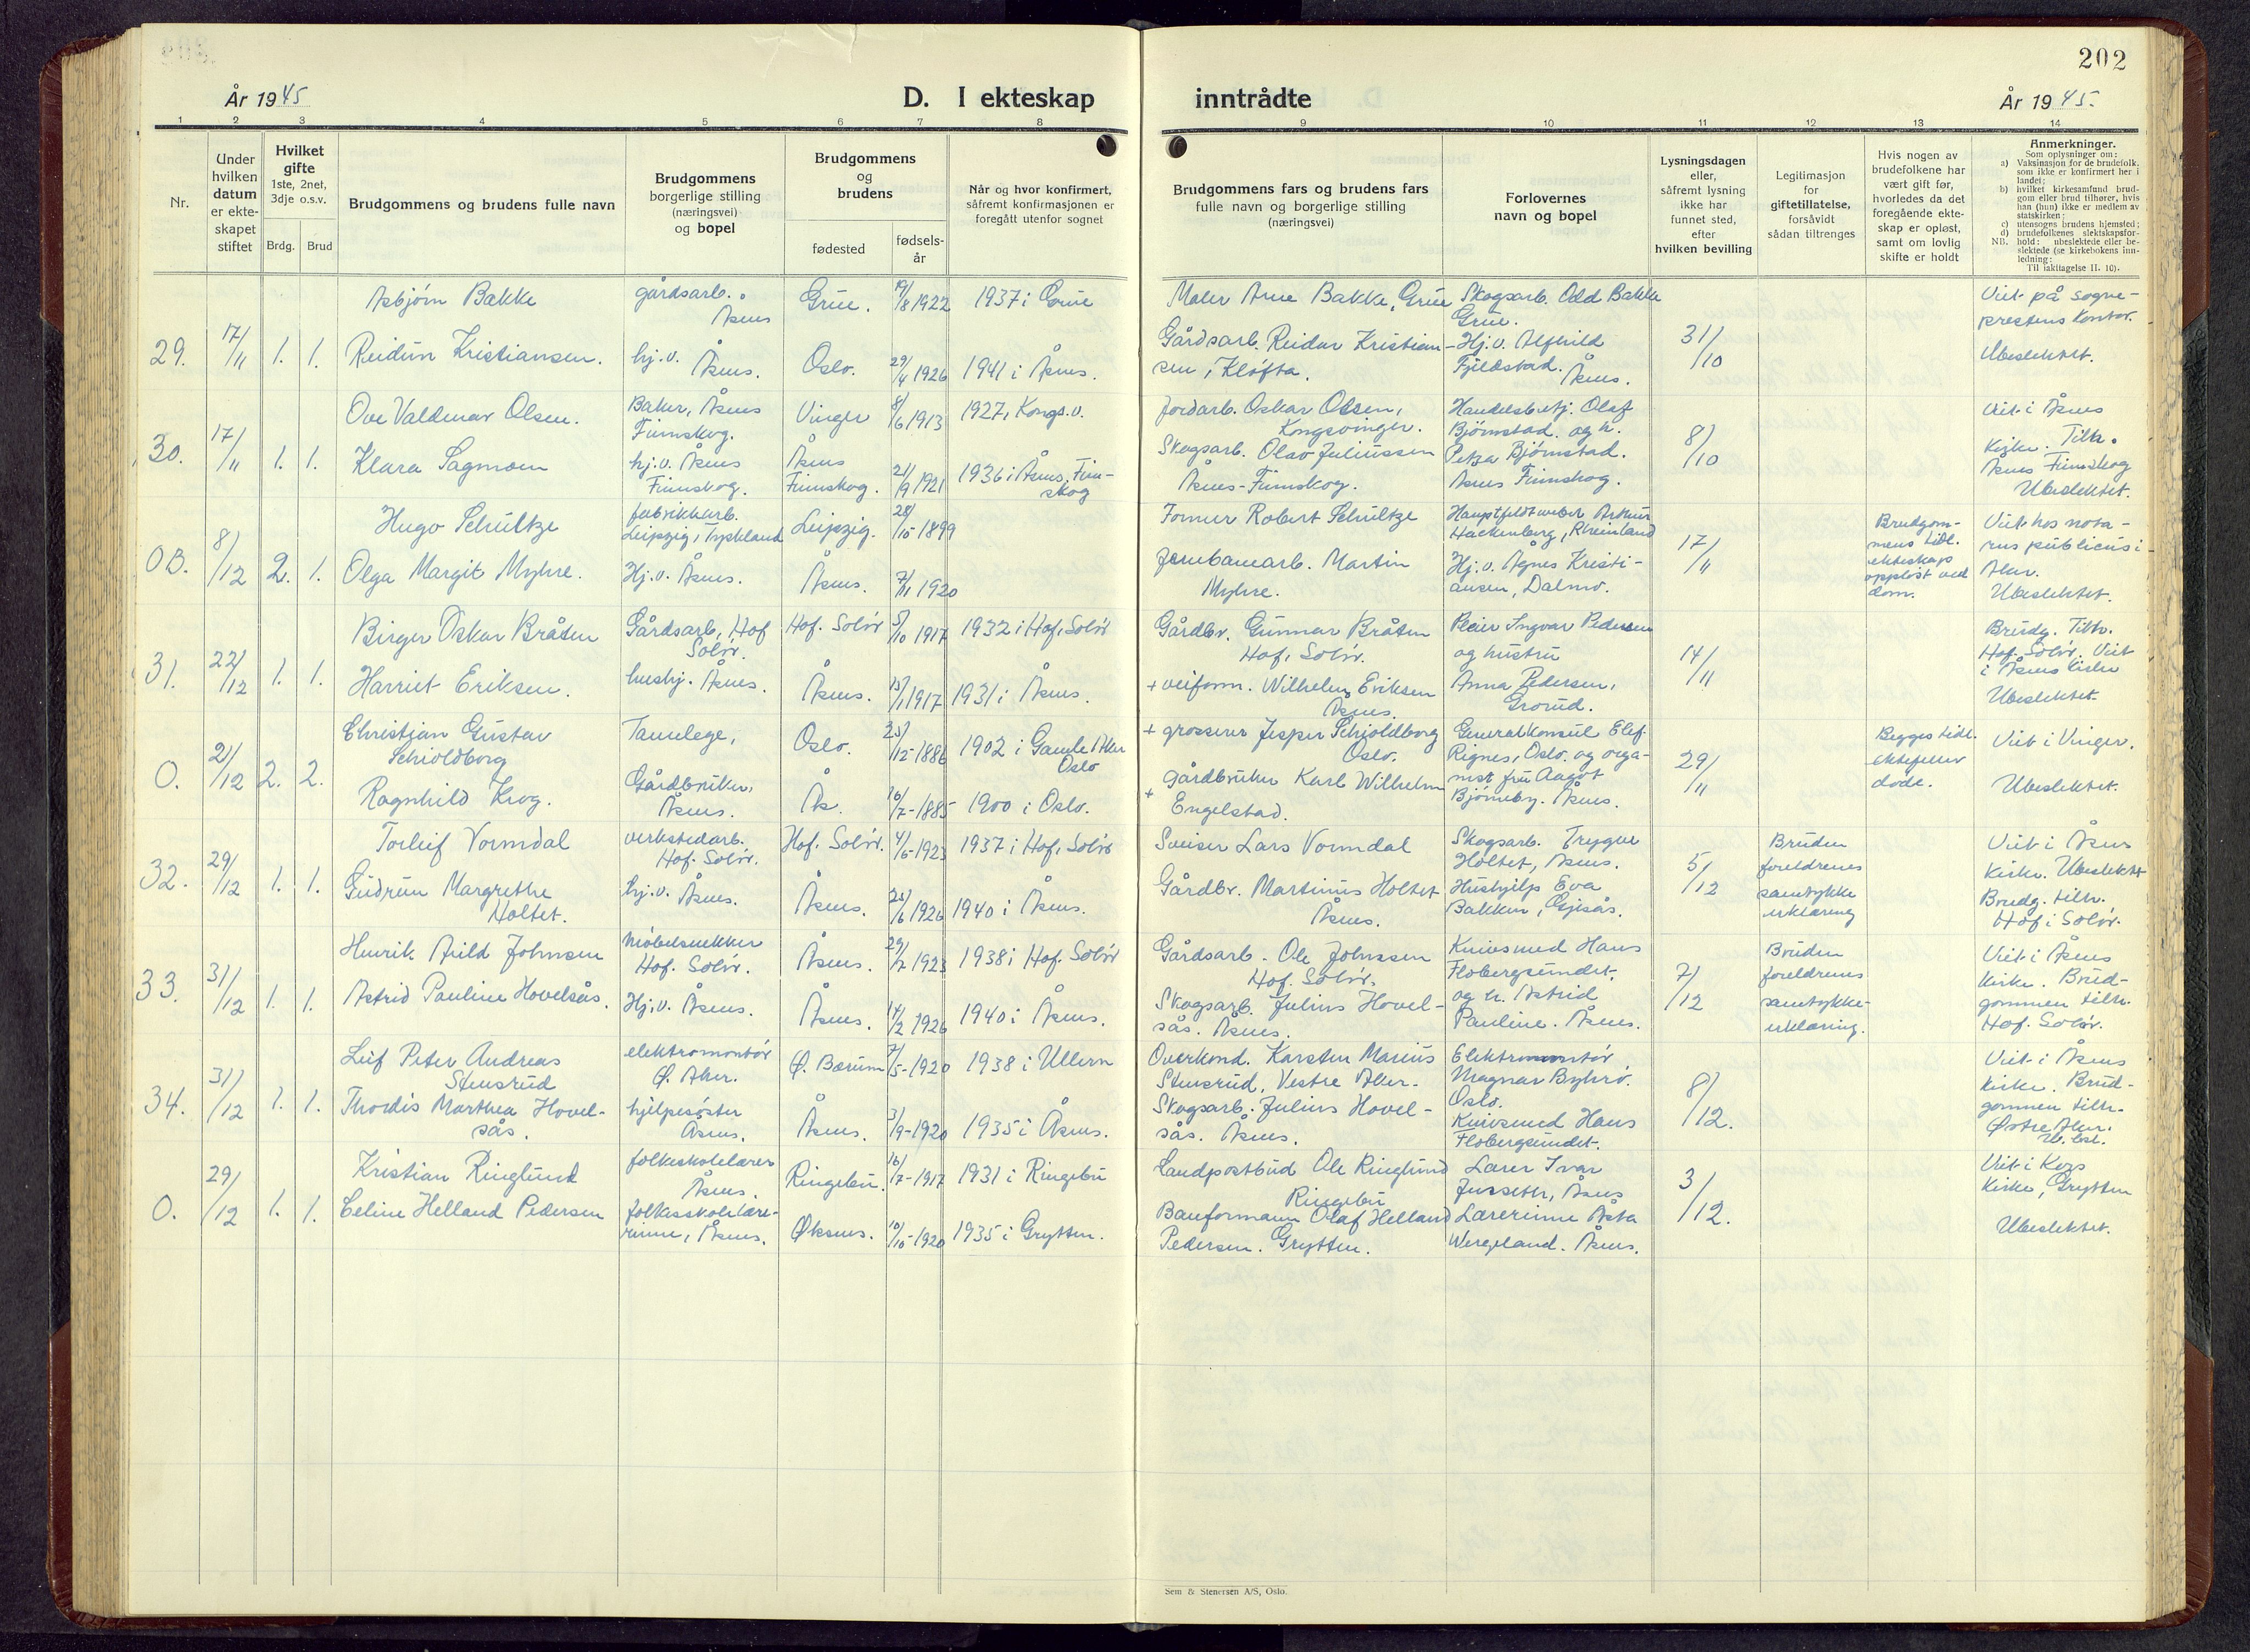 202
År 1945
D. I ekteskap inntrådte
År 1945.
1 2 3 4 5 6 7 8 9 10 11 12 13 14
Nr.
Under
hvilken
datum
er ekte-
skapet
stiftet
Hvilket
gifte
1ste, 2net,
3dje o.s.v.
Brdg. Brud
Brudgommens og brudens fulle navn
Brudgommens
borgerlige stilling
(næringsvei)
og bopel
Brudgommens
og
brudens
fødested
fødsels-
år
Når og hvor konfirmert,
såfremt konfirmasjonen er
foregått utenfor sognet
Brudgommens fars og brudens fars
fulle navn og borgerlige stilling
(næringsvei)
Forlovernes
navn og bopel
Lysningsdagen
eller,
såfremt lysning
ikke har
funnet sted,
efter
hvilken bevilling
Legitimasjon
for
giftetillatelse,
forsåvidt
sådan tiltrenges
Hvis nogen av
brudefolkene har
vært gift før,
hvorledes da det
foregående ekte-
skap er opløst,
samt om lovlig
skifte er holdt
Anmerkninger.
Som oplysninger om:
a) Vaksinasjon for de brudefolk,
som ikke er konfirmert her i
landet;
b) hvilket kirkesamfund brud-
gom eller brud tilhører, hvis
han (hun) ikke er medlem av
statskirken;
c) utensogns brudens hjemsted;
d) brudefolkenes slektskapsfor-
hold: ubeslektede eller be-
slektede (se kirkebokens inn-
ledning:
NB.
Til iakttagelse II. 10).
29.
17/11
1. 1.
Asbjørn Bakke
gårdsarb.
Åsnes
Grue.
19/8 1922
1937 i Grue
Maler Arne Bakke, Grue
Skogsarb. Odd Bakke
Grue.
Reidun Kristiansen.
hj.v. Åsnes.
Oslo.
29/4 1926
1941 i Åsnes.
Gårdsarb. Reidar Kristian-
sen, Kløfta.
Hj.v. Alfhild
Fjeldstad. Åsnes.
31/10
Viet på sogne-
prestens kontor.
Ubeslektet.
30.
17/11
1. 1.
Ove Valdemar Olsen.
Baker, Åsnes
Finnskog.
Vinger
8/6 1913
1927, Kongs.v.
Jordarb. Oskar Olsen,
Kongsvinger.
Handelsbetj. Olaf
Bjørnstad. og h.
Klara Sagmoen
hj.v. Åsnes
Finnskog.
Åsnes
Finnskog.
21/9 1921
1936 i Åsnes, Finn-
skog
Skogsarb. Olav Juliussen
Åsnes-Finnskog.
Petra Bjørnstad.
Åsnes Finnskog.
8/10
Viet i Åsnes
Kirke. Tilh.
Åsnes Finnskog
Ubeslektet.
OB.
8/12
2. 1.
Hugo Schultze
fabrikkarb.
Leipzig, Tyskland
Leipzig.
28/10 1899
Former Robert Schultze
Hauptfeldtweber Arthur
Hackenberg, Rheinland
Olga Margit Myhre.
Hj.v. Åsnes.
Åsnes.
7/11 1920
Jernbanearb. Martin
Myhre.
Hj.v. Agnes Kristi-
ansen, Dalmo.
17/11
Brudgom-
mens tidl.
ekteskap
oppløst ved
dom.
Viet hos nota-
rius publicus i
Aker.
Ubeslektet.
31.
22/12
1. 1.
Birger Oskar Bråten
Gårdsarb, Hof
Solør.
Hof. Solør
5/10 1917
1932 i Hof, Solør
Gårdbr. Gunnar Bråten
Hof, Solør.
Pleier Ingvar Pedersen
og hustru
Harriet Eriksen.
hushj. Åsnes.
Åsnes.
15/1 1917
1931 i Åsnes.
+ veiform. Wilhelm Eriksen
Åsnes.
Anna Pedersen,
Grorud.
14/11
Brudg. Tilh.
Hof, Solør. Viet
i Åsnes Kirke
Ubeslektet.
O.
21/12
2. 2.
Christjan Gustav
Schioldborg
Tannlege,
Oslo.
23/12-1886
1902 i Gamle Aker
Oslo
+ grosserer Jesper Schioldborg
Oslo.
Generalkonsul Elef
Rignes, Oslo. og orga-
Ragnhild Krog.
Gårdbruker,
Åsnes.
Ås.
16/7-1885
1900 i Oslo.
+ Gårdbruker Karl Wilhelm
Engelstad.
nist fru Aagot
Bjørneby. Åsnes.
29/11
Begges tidl.
ektefeller
døde.
Viet i Vinger.
Ubeslektet.
32.
29/12
1. 1.
Torleif Vormdal
verkstedarb.
Hof. Solør.
Hof. Solør.
4/6-1923
1937 i Hof, Solør
Sveiser Lars Vormdal
Skogsarb. Trygve
Holtet, Åsnes.
Gudrun Margrethe
Holtet.
hj.v. Åsnes.
Åsnes.
25/6 1926
1940 i Åsnes.
Gårdbr. Martinus Holtet
Åsnes.
Hushjelp Eva
Bakken, Gjesås.
5/12
Bruden
foreldrenes
samtykke
erklæring
Viet i Åsnes
Kirke. Ubeslektet
Brudg. tilh.
Hof i Solør.
33.
31/12
1. 1.
Henrik Arild Johnsen
Møbelsnekker
Hof. Solør.
Åsnes.
29/7 1923
1938 i Hof. Solør
Gårdsarb. Ole Johnsen
Hof. Solør.
Knivsmed Hans
Flobergsundet.
Astrid Pauline Hovelsås.
Hj.v. Åsnes.
Åsnes.
14/2 1926
1940 i Åsnes.
Skogsarb. Julius Hovel-
sås. Åsnes.
og h. Astrid
Pauline. Åsnes.
7/12
Bruden
foreldrenes
samtykke-
erklæring.
Viet i Åsnes
Kirke. Brud-
gommen tilh.
Hof. Solør.
34.
31/12
1. 1.
Leif Peter Andreas
Stensrud
elektromontør
Ø. Aker.
Ø. Bærum
7/5-1920
1938 i Ullern
Overkond. Karsten Marius
Stensrud, Vestre Aker.
Elektromontør
Magnar Byhrø.
Oslo.
Thordis Marthea Hovel-
sås.
hjelpesøster
Åsnes.
Åsnes.
3/9-1920
1935 i Åsnes.
Skogsarb. Julius Hovel-
sås. Åsnes.
Knivsmed Hans
Flobergsundet.
8/12.
Viet i Åsnes
Kirke. Brud-
gommen tilh.
Østre Aker.
Ub.esl.
O.
29/12
1. 1.
Kristian Ringlund
folkeskolelærer
Åsnes.
Ringebu.
16/7-1917
1931 i Ringebu
Landpostbud Ole Ringlund
Ringebu
Lærer Ivar
Jusseter, Åsnes
Celine Helland Pedersen
folkeskolelære-
rinne, Åsnes.
Øksnes.
10/10-1920
1935 i Grytten.
Baneformann Olaf Helland
Pedersen. Grytten.
Lærerinne Åsta
Wergeland. Åsnes.
3/12.
Viet i Kors
Kirke, Grytten
Ubeslektet.
Sem & Stenersen A/S, Oslo.